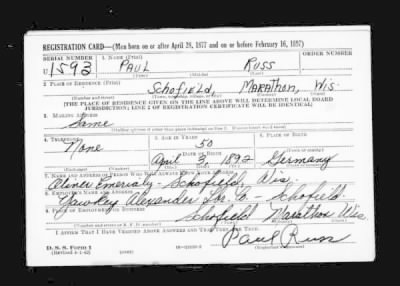 REGISTRATION CARD—(Men born on or after April 28, 1877 and on or before February 16, 1897)
SERIAL NUMBER 1. NAME (Print) ORDER NUMBER
U 1593 PAUL RUSS
(First) (Middle) (Last)
2. PLACE OF RESIDENCE (Print)
Schofield, Marathon, Wis.
(Number and street) (Town, township, village, or city) (County) (State)
[THE PLACE OF RESIDENCE GIVEN ON THE LINE ABOVE WILL DETERMINE LOCAL BOARD
JURISDICTION; LINE 2 OF REGISTRATION CERTIFICATE WILL BE IDENTICAL]
3. MAILING ADDRESS
Same
[Mailing address if other than place indicated on line 2. If same insert word same]
4. TELEPHONE 5. AGE IN YEARS 6. PLACE OF BIRTH
None 50
DATE OF BIRTH
April 3, 1892 Germany
7. NAME AND ADDRESS OF PERSON WHO WILL ALWAYS KNOW YOUR ADDRESS
Schofield, Wis.
8. EMPLOYER'S NAME AND ADDRESS
Yawkey Alexander Lbr. Co. - Schofield.
9. PLACE OF EMPLOYMENT OR BUSINESS
Schofield Marathon Wis
(Number and street or R. F. D. number) (Town) (County) (State)
I AFFIRM THAT I HAVE VERIFIED ABOVE ANSWERS AND THAT THEY ARE TRUE.
Paul Russ
D. S. S. Form 1
(Revised 4-1-42) (over) (Registrant's signature)